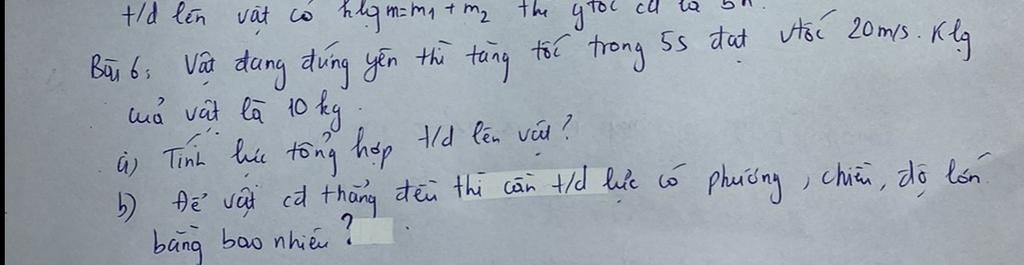 t/d lên vật có klg m=m₁ + m₂ thì gtốc cđ là
Bài 6: Vật đang đứng yên thì tăng tốc trong 5s đạt vtốc 20m/s. Klg
của vật là 10 kg.
a) Tính lực tổng hợp t/d lên vật?
b) Để vật cđ thẳng đều thì cần t/d lực có phương, chiều, độ lớn
bằng bao nhiêu?